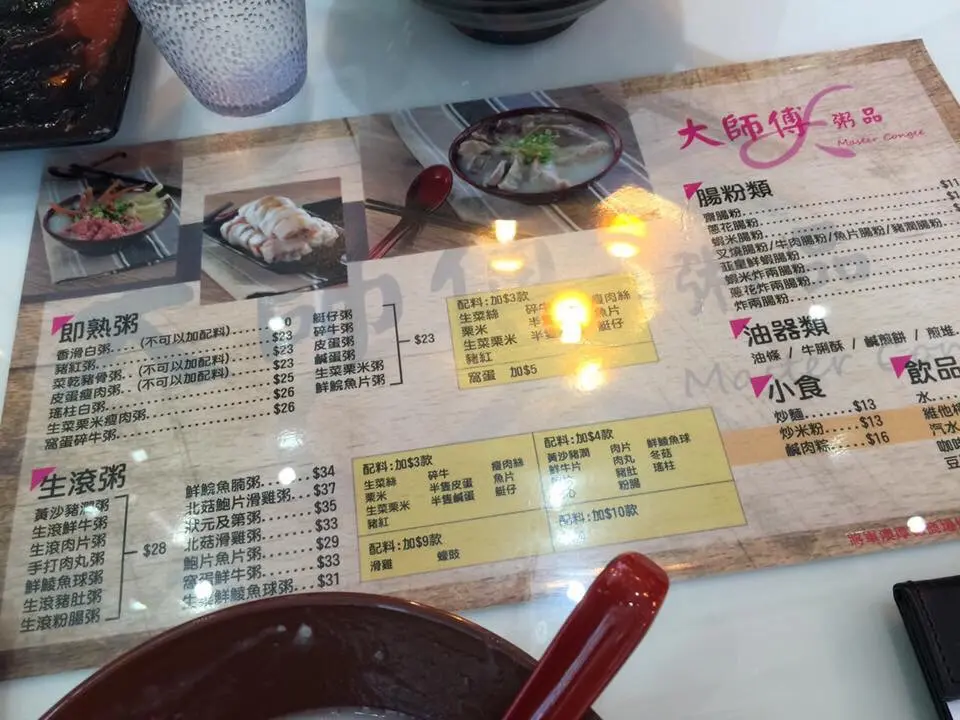 大師傅 粥品
Master Congee
腸粉類
齋腸粉
葱花腸粉
蝦米腸粉
叉燒腸粉/牛肉腸粉/魚片腸粉/豬潤腸粉
韮皇鮮蝦腸粉
蝦米炸兩腸粉
葱花炸兩腸粉
炸兩腸粉
油器類
油條 / 牛脷酥 / 鹹煎餅 / 煎堆
小食
炒麵 $13
炒米粉 $13
鹹肉粽 $16
飲品
水
汽水
即熟粥
香滑白粥 (不可以加配料)
豬紅粥 $23
菜乾豬骨粥 (不可以加配料) $23
皮蛋瘦肉粥 (不可以加配料) $23
瑤柱白粥 $25
生菜粟米瘦肉粥 $26
窩蛋碎牛粥 $26
艇仔粥
碎牛粥
皮蛋粥
鹹蛋粥
生菜粟米粥
鮮鯇魚片粥
$23
配料:加$3款
生菜絲 碎牛 瘦肉絲
粟米 半隻 魚片
生菜粟米 半隻 艇仔
豬紅
窩蛋 加$5
生滾粥
黃沙豬潤粥
生滾鮮牛粥
生滾肉片粥
手打肉丸粥
鮮鯪魚球粥
生滾豬肚粥
生滾粉腸粥
$28
鮮鯇魚腩粥 $34
北菇鮑片滑雞粥 $37
狀元及第粥 $35
北菇滑雞粥 $33
鮑片魚片粥 $29
窩蛋鮮牛粥 $33
生菜鮮鯪魚球粥 $31
配料:加$3款
生菜絲 碎牛 瘦肉絲
粟米 半隻皮蛋 魚片
生菜粟米 半隻鹹蛋 艇仔
豬紅
配料:加$4款
黃沙豬潤 肉片 鮮鯪魚球
鮮牛片 肉丸 冬菇
豬肚 瑤柱
粉腸
配料:加$9款
滑雞 蠔豉
配料:加$10款